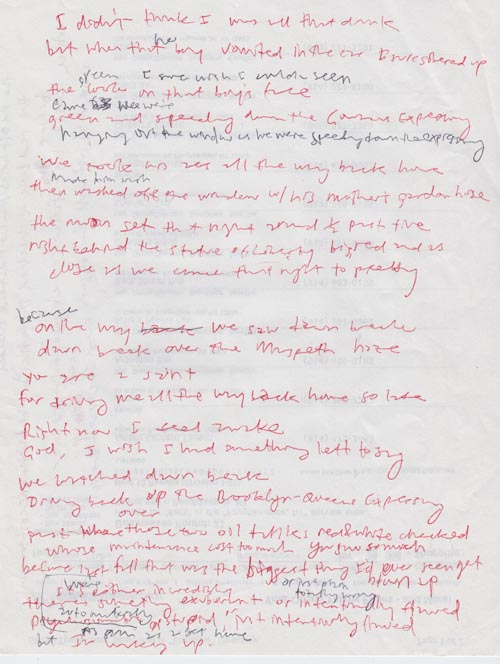 I didn't think I was all that drunk
he
but when that boy vomited in the car I sure sobered up
green I sure wish I coulda seen
the look on that boy's face
green and speeding down the Gowanus Expressway
hanging out the window as we were speeding down the expressway
We rode his ass all the way back home
made him wash
then washed off the window w/ his mother's garden hose
the moon set that night around ½ past five
right behind the statue of liberty big red and as
close as we came that night to
because
on the way back we saw dawn break
dawn break over the Maspeth haze
you are a saint
for driving me all the way back home so late
Right now I feel awake
God, I wish I had something left to say
we watched dawn break
Driving back up the Brooklyn-Queens Expressway
over
past where those two oil tanks red & white checked
whose maintenance cost too much
because last fall that was the biggest thing I'd ever seen get
blown up
We're
or just plain
it's either incredibly
totally wrong
there is something exuberant or intentionally flawed
or stupid, just intentionally flawed
but I'm waking up.